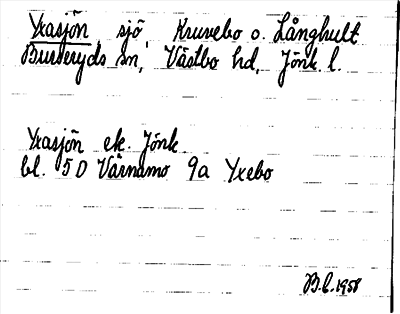 Yxasjön sjö, Kruvebo o. Långhult
Burseryds sn, Västbo hd, Jönk. l.
Yxasjön ek. Jönk.
bl. 5 D Värnamo 9a Yxebo
B.l. 1958